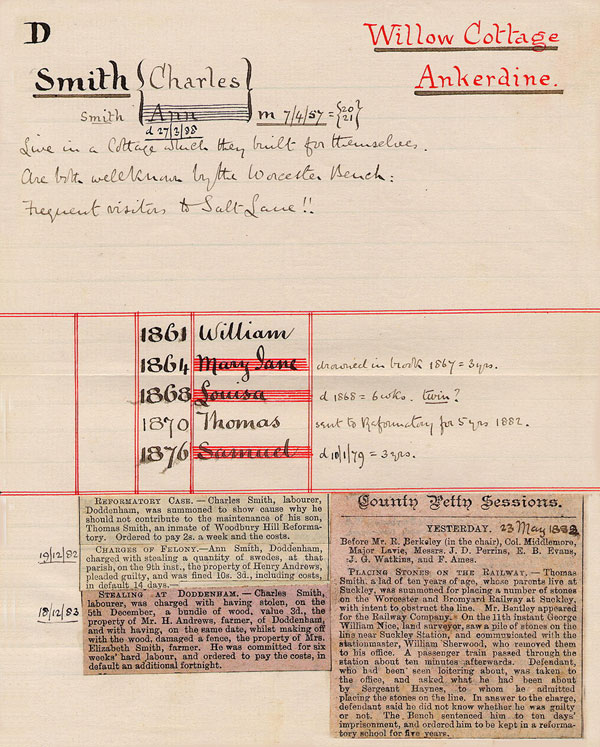 D
Willow Cottage
Ankerdine.
Smith {Charles}
Smith Ann m 7/4/57 = {20 21}
d 27/2/98
Live in a Cottage which they built for themselves.
Are both well known by the Worcester Bench:
Frequent visitors to Salt Lane!!
1861 William
1864 Mary Jane drowned in brook 1867 = 3 yrs.
1868 Louisa d 1868 = 6 wks. twin?
1870 Thomas sent to Reformatory for 5 yrs 1882.
1876 Samuel d 10/1/79 = 3 yrs.
REFORMATORY CASE.—Charles Smith, labourer,
Doddenham, was summoned to show cause why he
should not contribute to the maintenance of his son,
Thomas Smith, an inmate of Woodbury Hill Reforma-
tory. Ordered to pay 2s. a week and the costs.
19/12/82
CHARGES OF FELONY.—Ann Smith, Doddenham,
charged with stealing a quantity of swedes, at that
parish, on the 9th inst., the property of Henry Andrews,
pleaded guilty, and was fined 10s. 3d., including costs,
in default 14 days.
18/12/83
STEALING AT DODDENHAM.—Charles Smith,
labourer, was charged with having stolen, on the
5th December, a bundle of wood, value 3d., the
property of Mr. H. Andrews, farmer, of Doddenham,
and with having, on the same date, whilst making off
with the wood, damaged a fence, the property of Mrs.
Elizabeth Smith, farmer. He was committed for six
weeks' hard labour, and ordered to pay the costs, in
default an additional fortnight.
County Petty Sessions.
YESTERDAY. 23 May
Before Mr. R. Berkeley (in the chair), Col. Middlemore,
Major Lavie, Messrs. J. D. Perrins, E. B. Evans,
J. G. Watkins, and F. Ames.
PLACING STONES ON THE RAILWAY.—Thomas
Smith, a lad of ten years of age, whose parents live at
Suckley, was summoned for placing a number of stones
on the Worcester and Bromyard Railway at Suckley,
with intent to obstruct the line. Mr. Bentley appeared
for the Railway Company. On the 11th instant George
William Nice, land surveyor, saw a pile of stones on the
line near Suckley Station, and communicated with the
stationmaster, William Sherwood, who removed them
to his office. A passenger train passed through the
station about ten minutes afterwards. Defendant,
who had been seen loitering about, was taken to
the office, and asked what he had been about
by Sergeant Haynes, to whom he admitted
placing the stones on the line. In answer to the charge,
defendant said he did not know whether he was guilty
or not. The Bench sentenced him to ten days'
imprisonment, and ordered him to be kept in a reforma-
tory school for five years.